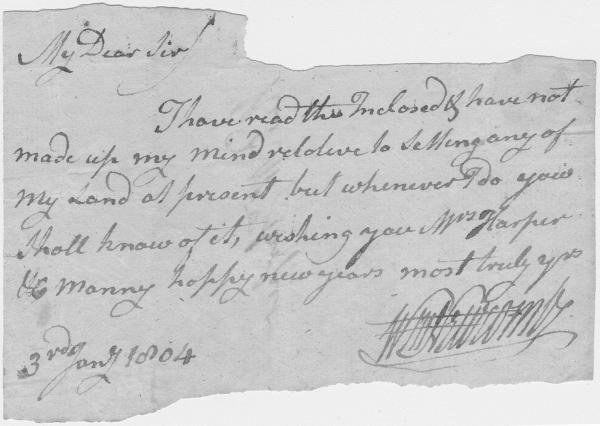 My Dear Sir
I have read the Inclosed & have not
made up my mind relative to Selling any of
my Land at present but whenever I do you
Shall know of it, wishing you Mrs Harper
&c manny happy new years most truly yrs
3rd Jany 1804